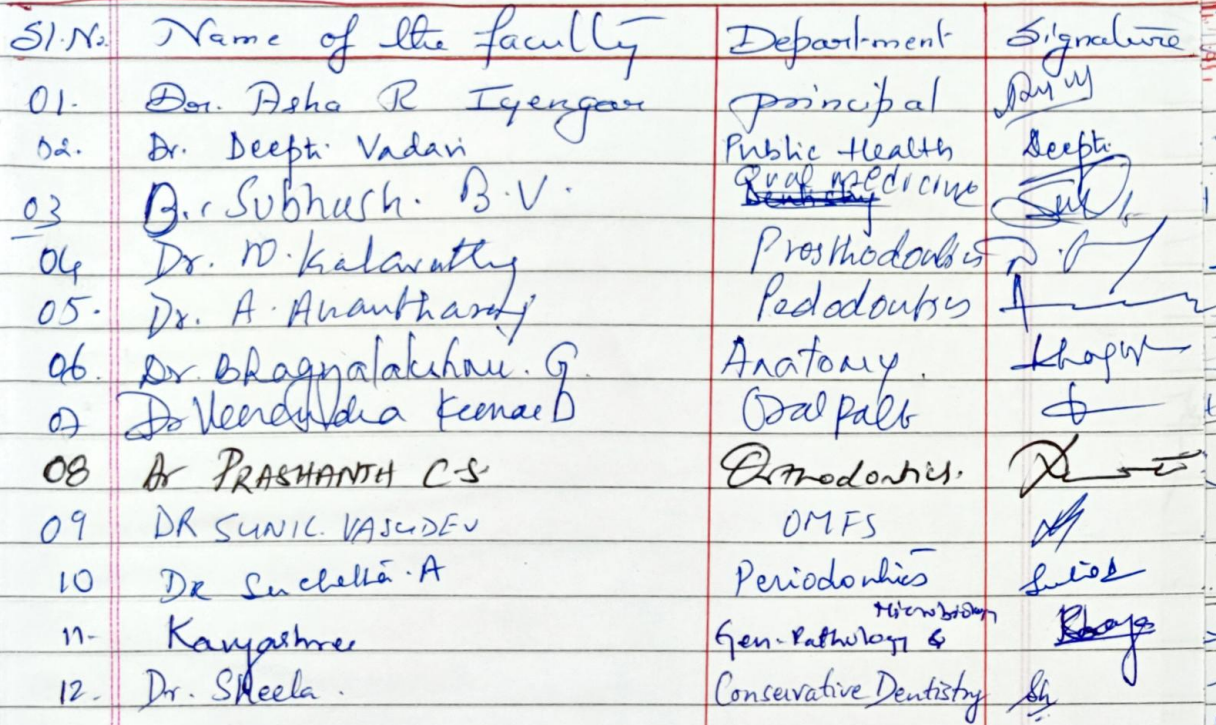 Sl.No. Name of the faculty Department Signature
01. Dr. Asha R Iyengar principal
02. Dr. Deepti Vadavi Public Health Deepti
03 Dr. Subhash. B.V. Oral medicine
04 Dr. N. Kalavathy Prosthodontics
05. Dr. A. Ananthavaj Pedodontics
06. Dr. Bhagyalakshmi. G. Anatomy.
07 Dr Veerendra Kumar B Oral path
08 Dr PRASHANTH C S Orthodontics.
09 DR SUNIL VASUDEV OMFS
10 DR Suchetha. A Periodontics
11- Kavyashree Gen-Pathology & Microbiology
12. Dr. Sheela. Conservative Dentistry Sh